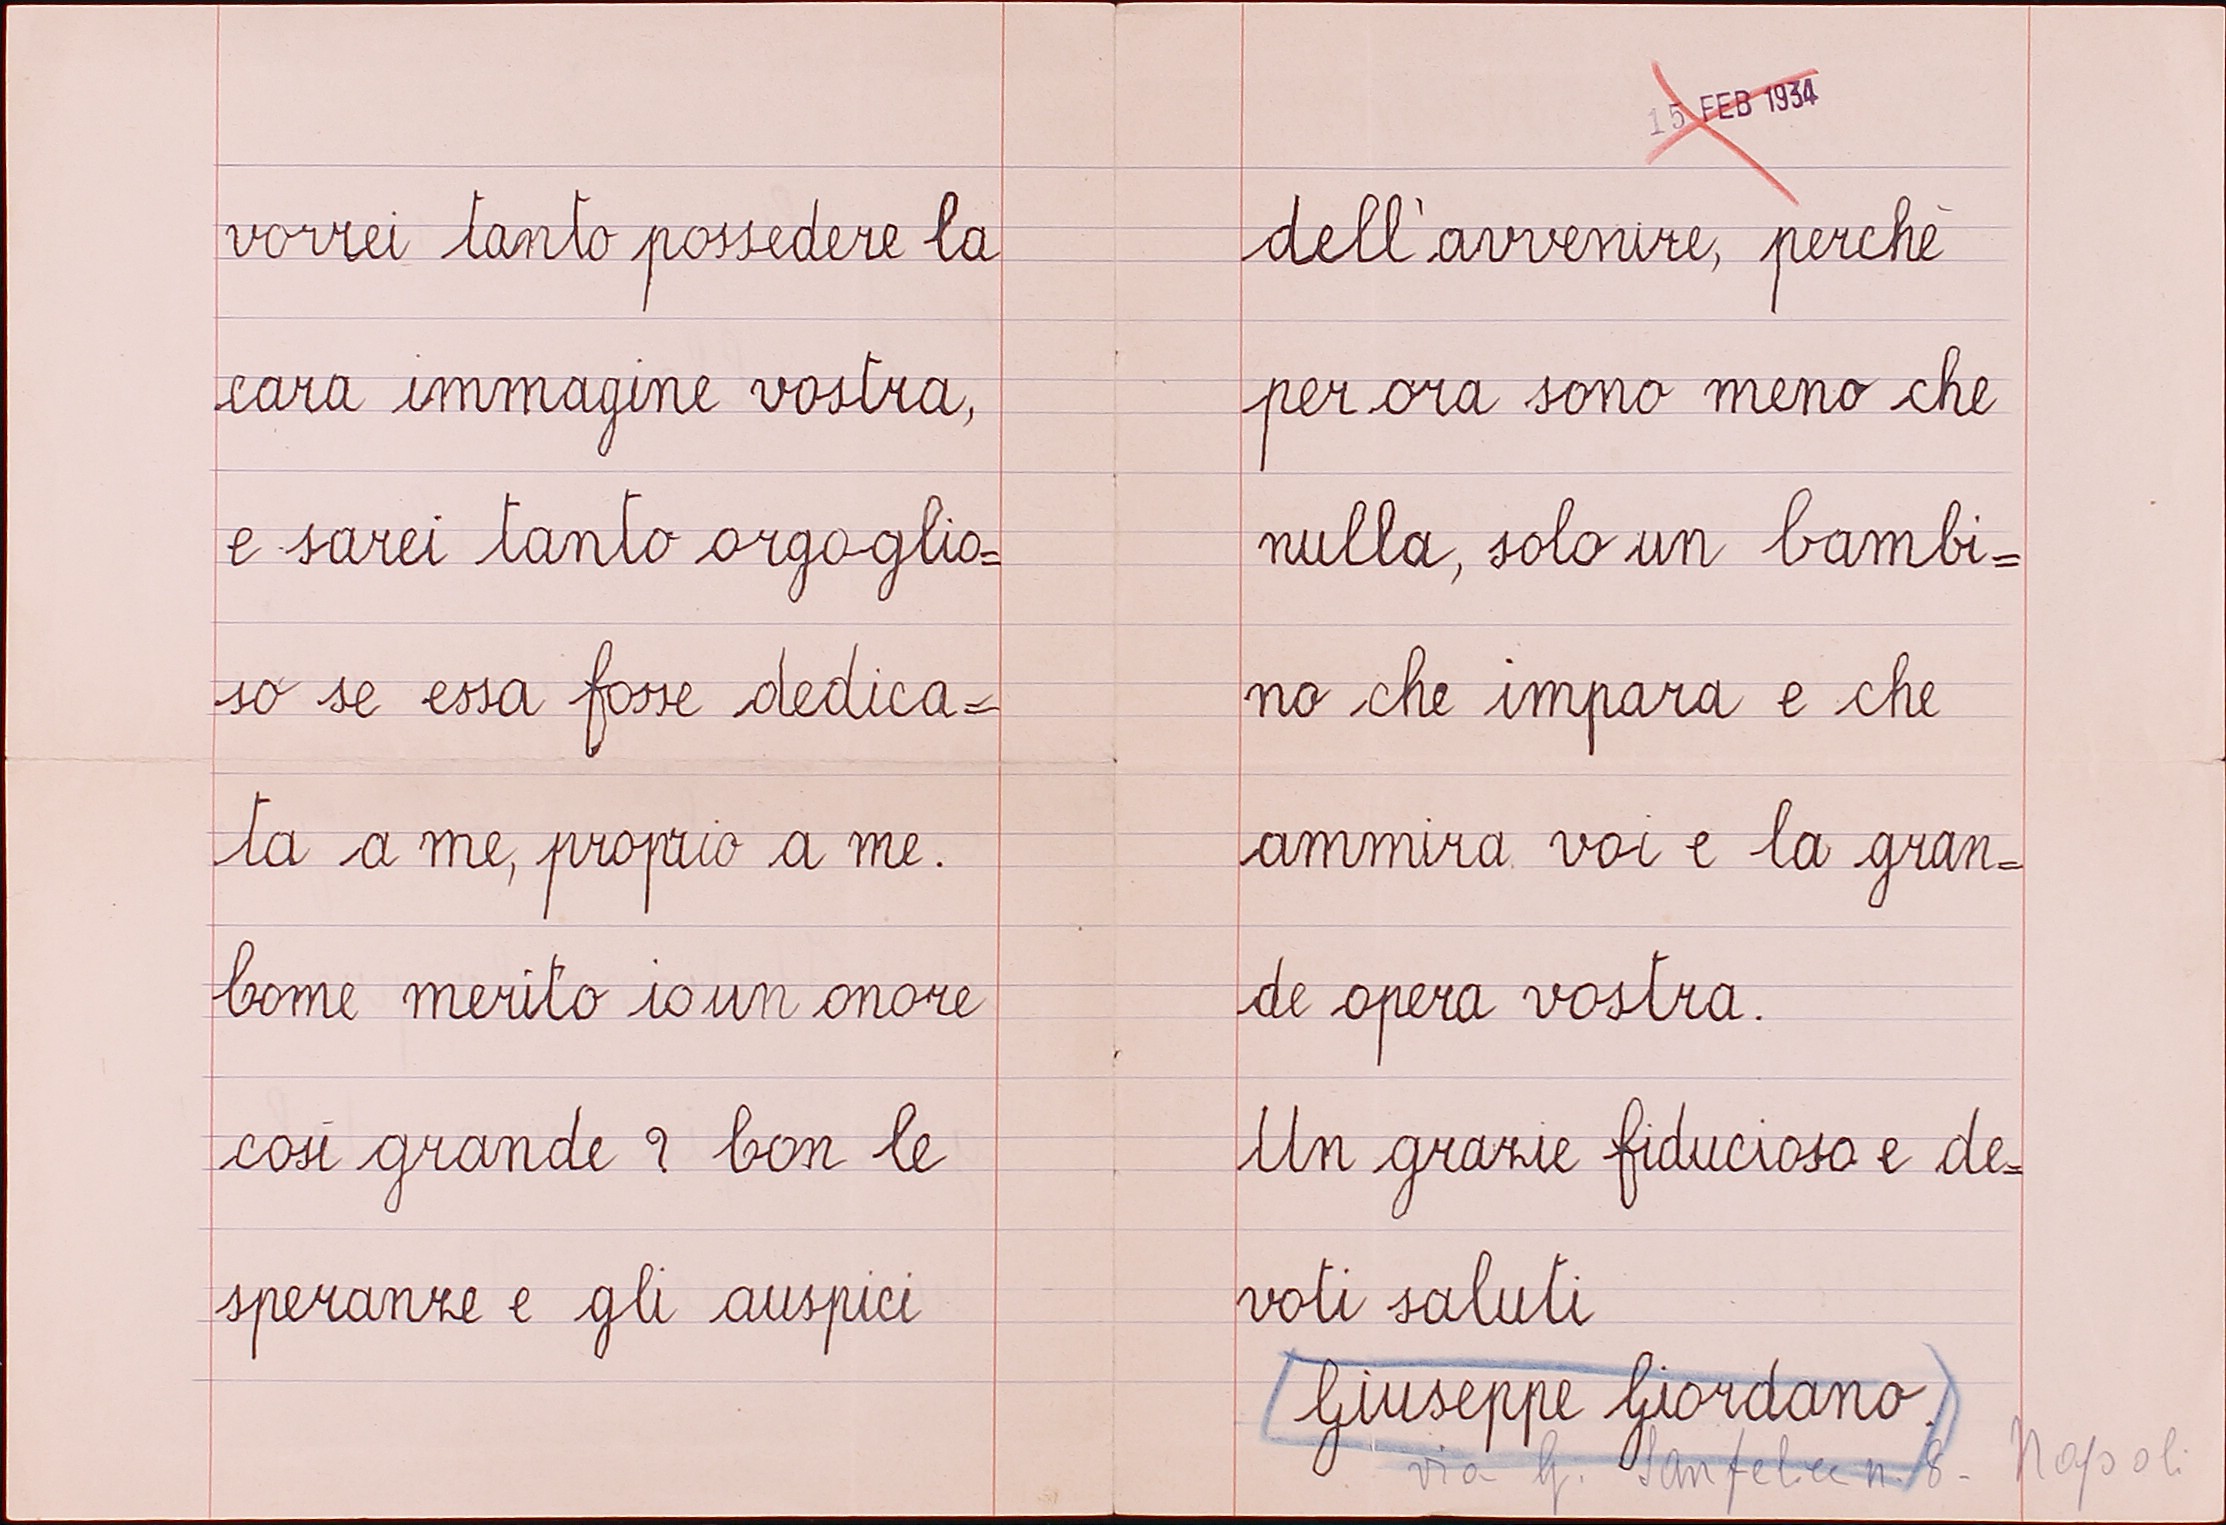 vorrei tanto possedere la
cara immagine vostra,
e sarei tanto orgoglio=
so se essa fosse dedica=
ta a me, proprio a me.
Come merito io un onore
così grande? Con le
speranze e gli auspici
15 FEB 1934
dell'avvenire, perchè
per ora sono meno che
nulla, solo un bambi=
no che impara e che
ammira voi e la gran=
de opera vostra.
Un grazie fiducioso e de=
voti saluti
Giuseppe Giordano.
via G. Sanfelice n. 8 - Napoli